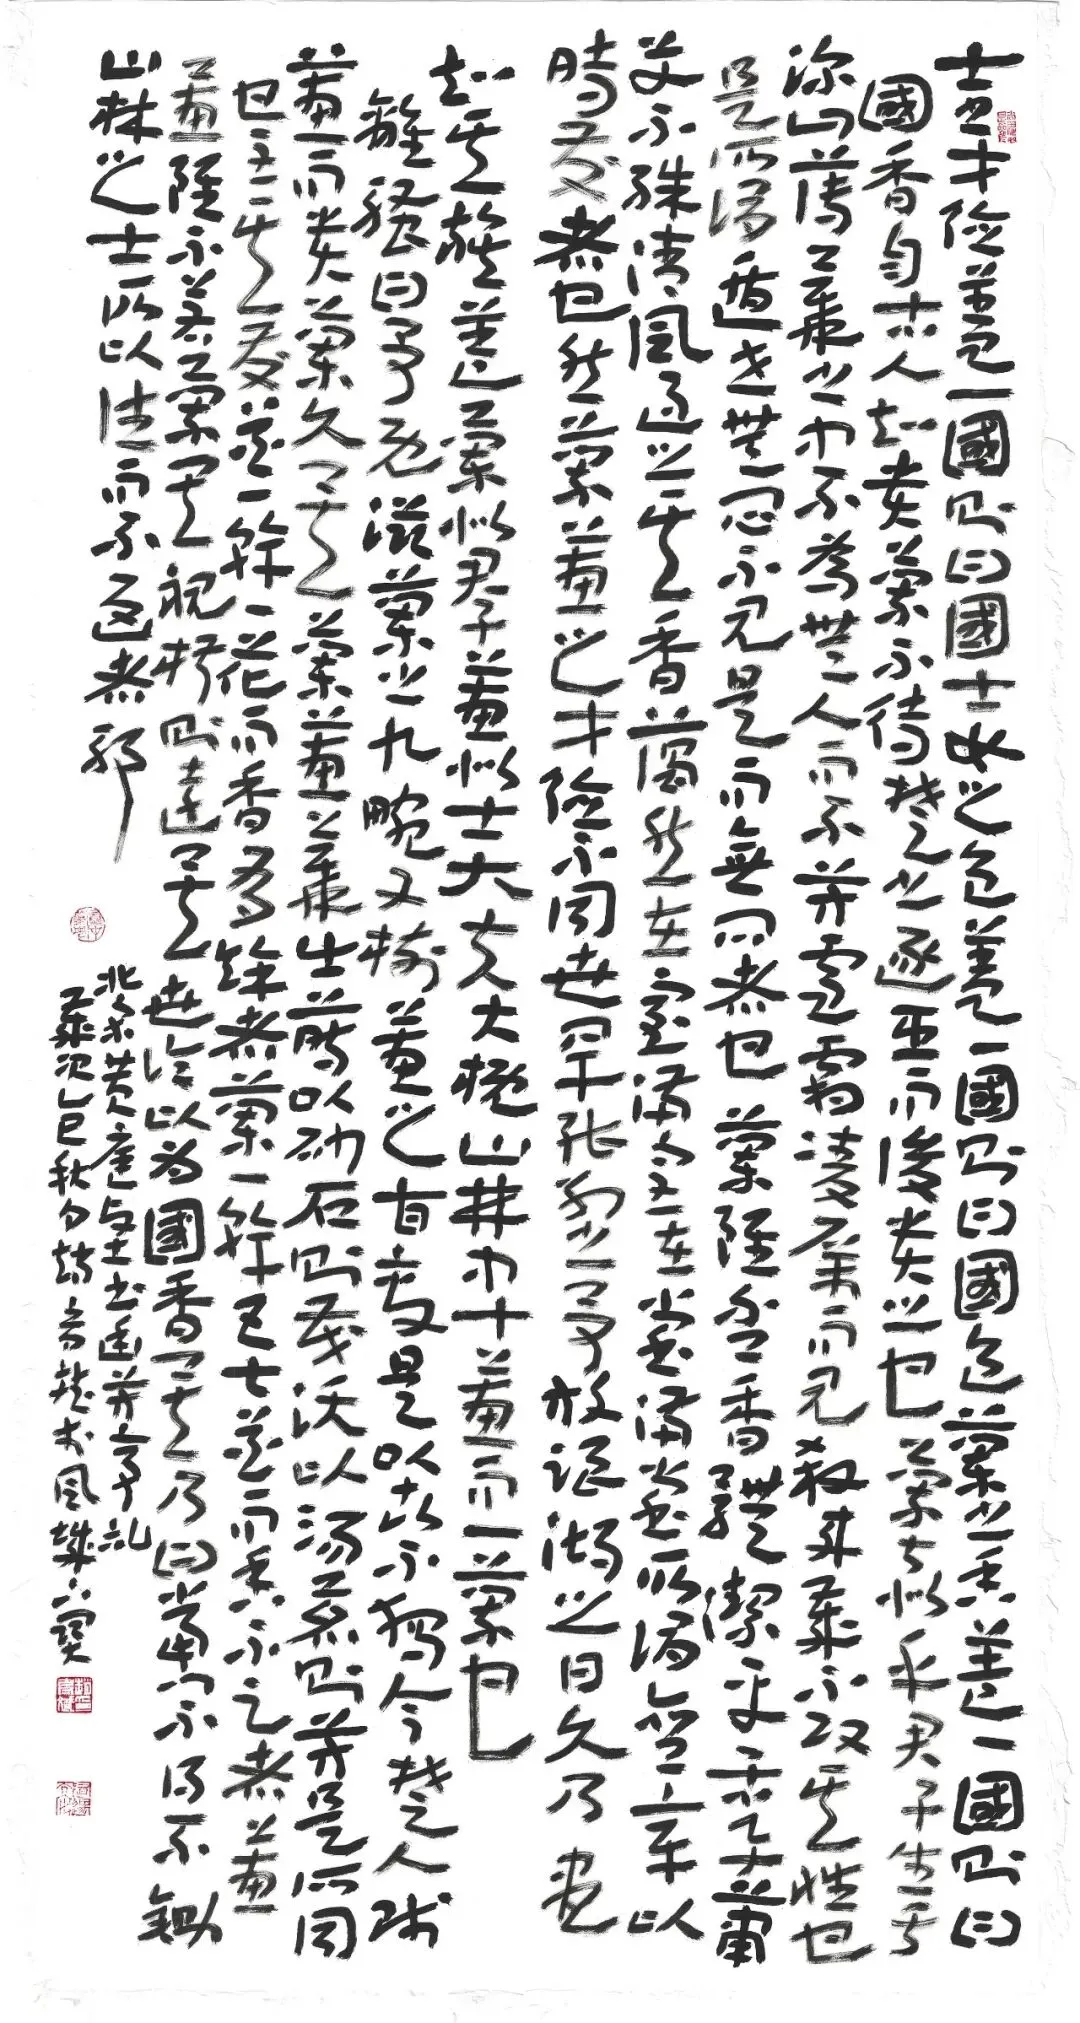 士之才德蓋一國則曰國士女之色蓋一國則曰國色蘭之香蓋一國則曰
國香自古人知貴蘭不待楚之逐臣而後貴之也蘭甚似乎君子生于
深山薄叢之中不為無人而不芳雪霜凌厲而見殺來歲不改其性也
是所謂遁世無悶不見是而無悶者也蘭雖含香體潔平居與蕭
艾不殊清風過之其香藹然在室滿室在堂滿堂所謂含章以
時發者也然蘭蕙之才德不同世罕能別之予放浪湖之日久乃盡
知其族蓋蘭似君子蕙似士大夫大概山林中十蕙而一蘭也
離騷曰予既滋蘭之九畹又樹蕙之百畝是以知不獨今楚人賤
蕙而貴蘭久矣蘭蕙叢出蒔以砂石則茂沃以湯茗則芳是所同
也至其發花一幹一花而香有餘者蘭一幹五七花而香不足者蕙
蕙雖不若蘭其視椒則遠矣世論以為國香矣乃曰當門不得不鋤
山林之士所以往而不返者耶
北宋黃庭堅書幽芳亭記
歲次乙巳秋月於風寶